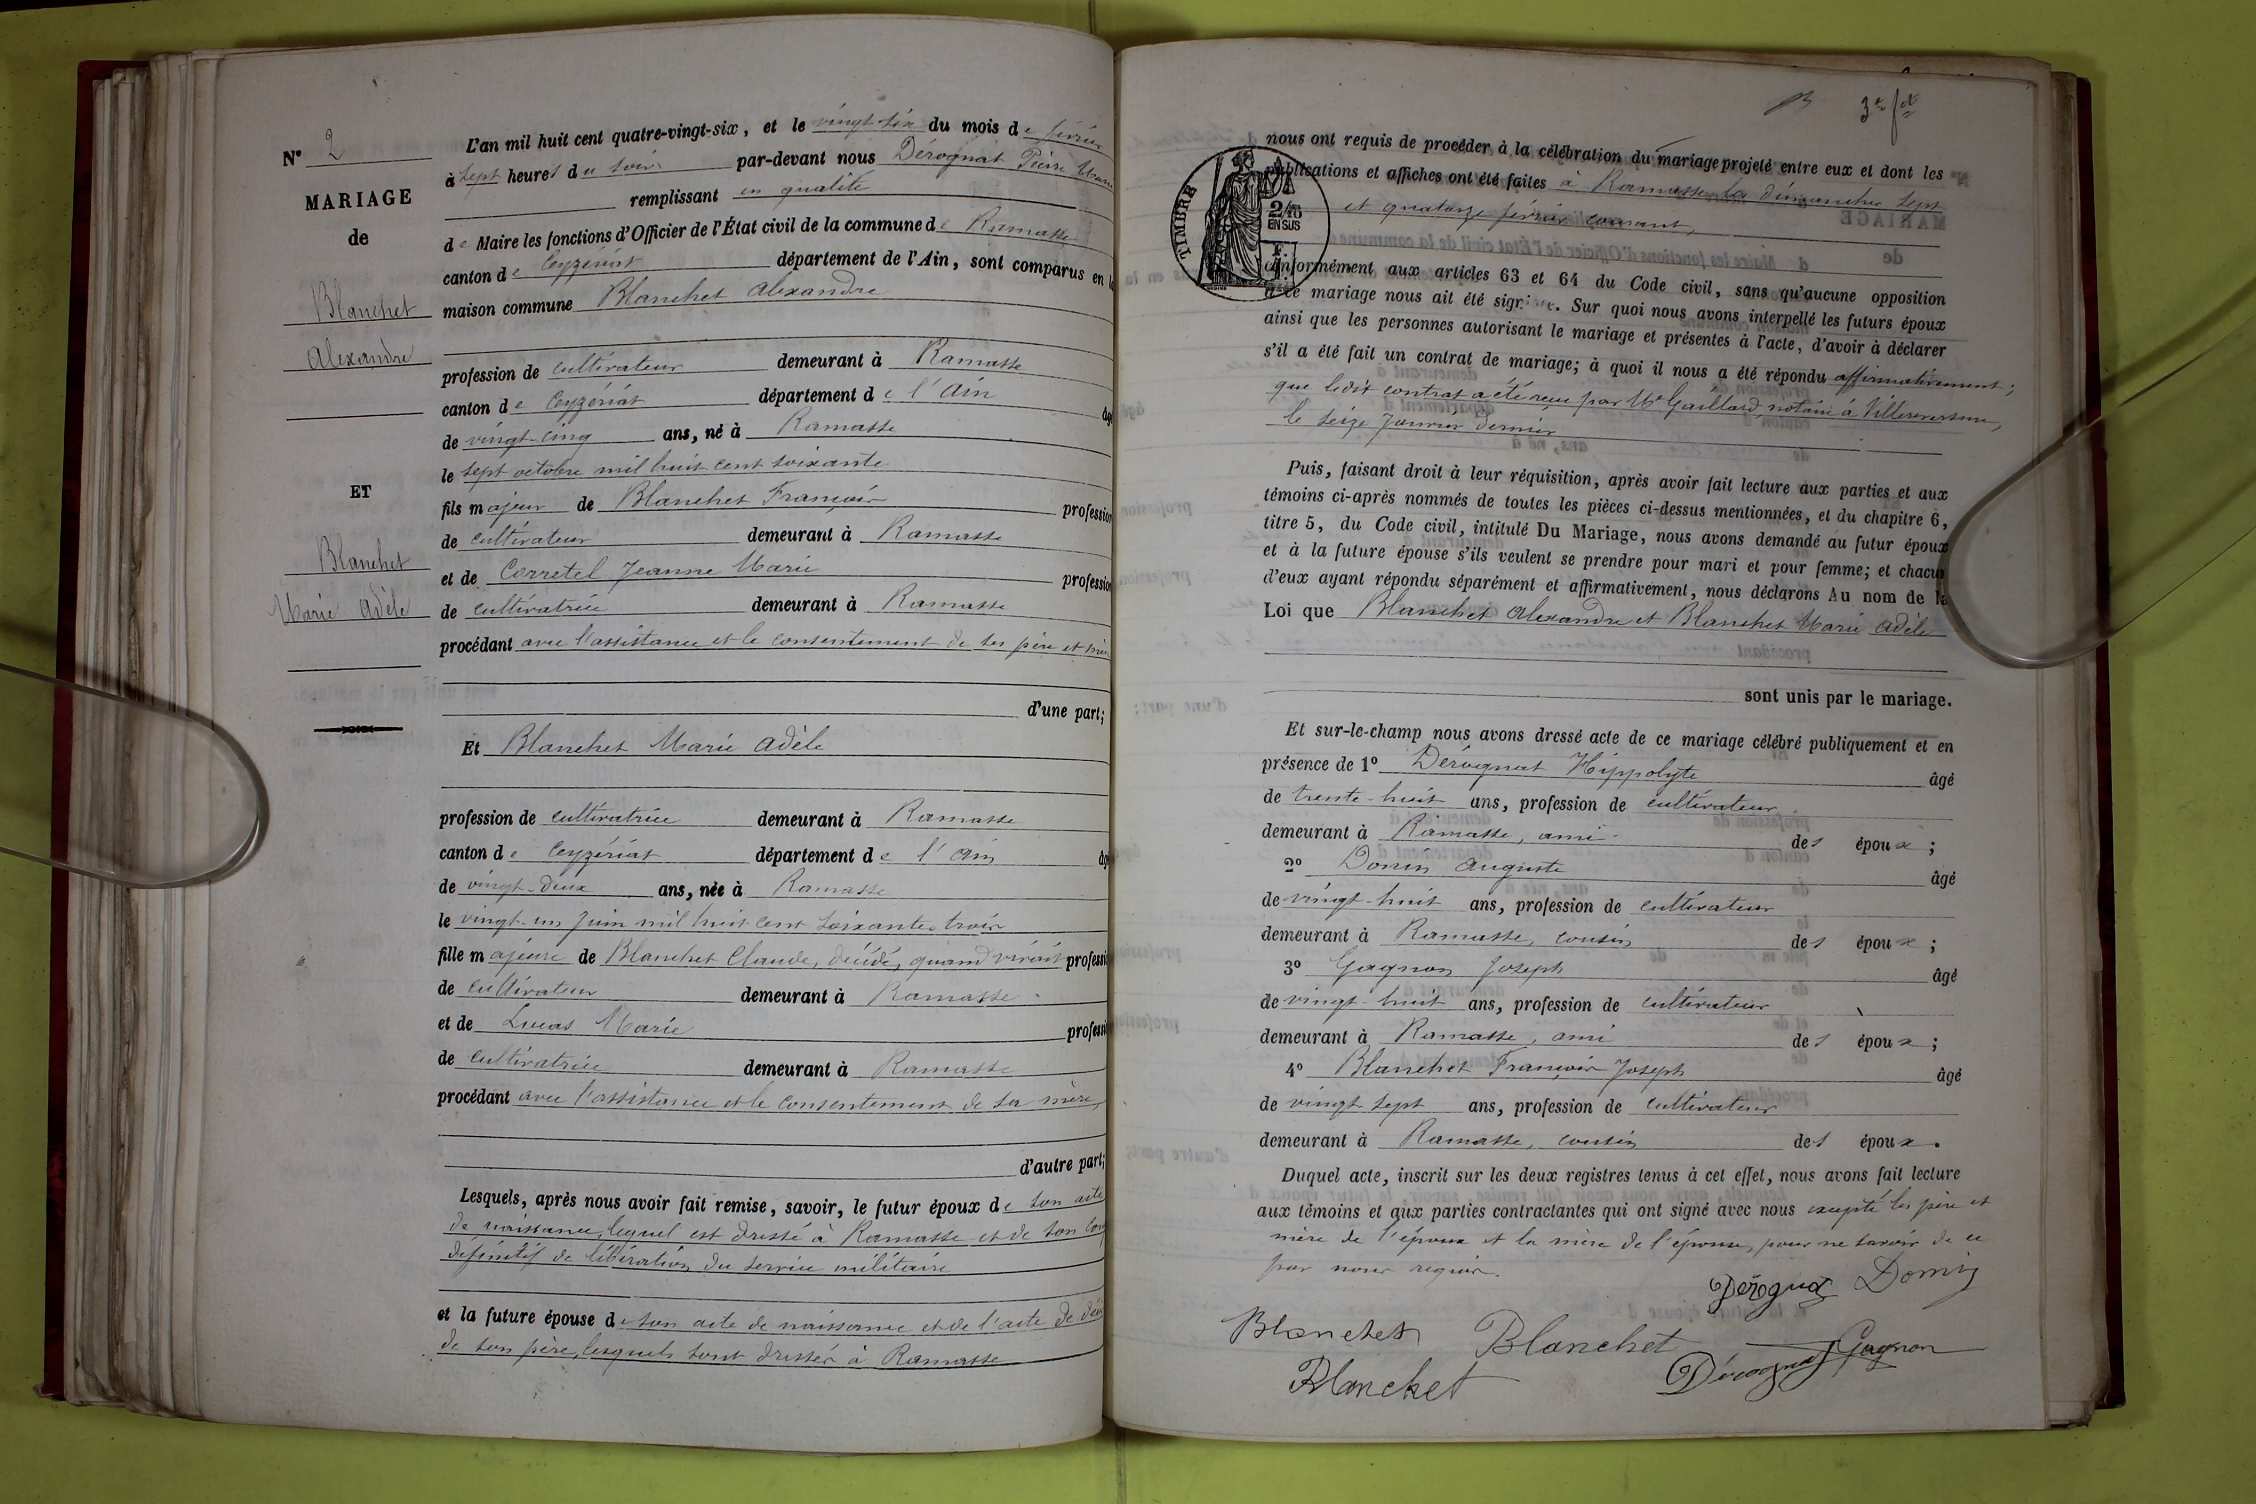 N° 2
MARIAGE
de
Blanchet
Alexandre
ET
Blanchet
Marie Adèle
L'an mil huit cent quatre-vingt-six, et le vingt six du mois de février
à sept heures du soir par-devant nous Dérognat Pierre
remplissant en qualité
de Maire les fonctions d'Officier de l'État civil de la commune de Ramasse
canton de Ceyzériat département de l'Ain, sont comparus en la
maison commune Blanchet Alexandre
profession de cultivateur demeurant à Ramasse
canton de Ceyzériat département de l'Ain âgé
de vingt-cinq ans, né à Ramasse
le sept octobre mil huit cent soixante
fils majeur de Blanchet François profession
de cultivateur demeurant à Ramasse
et de Corretel Jeanne Marie profession
de cultivatrice demeurant à Ramasse
procédant avec l'assistance et le consentement de ses père et mère
d'une part;
Et Blanchet Marie Adèle
profession de cultivatrice demeurant à Ramasse
canton de Ceyzériat département de l'Ain âgé
de vingt-deux ans, née à Ramasse
le vingt-un juin mil huit cent soixante trois
fille majeure de Blanchet Claude, décédé, quand vivait professi
de cultivateur demeurant à Ramasse
et de Lucas Marie professi
de cultivatrice demeurant à Ramasse
procédant avec l'assistance et le consentement de sa mère,
d'autre part;
Lesquels, après nous avoir fait remise, savoir, le futur époux de son acte
de naissance, lequel est dressé à Ramasse et de son
définitif de libération du service militaire
et la future épouse de son acte de naissance et de l'acte de
de son père, lesquels sont dressés à Ramasse
3e fet
nous ont requis de procéder à la célébration du mariage projeté entre eux et dont les
publications et affiches ont été faites à Ramasse, les dimanches sept
et quatorze février courant,
TIMBRE
2/10
EN SUS
conformément aux articles 63 et 64 du Code civil, sans qu'aucune opposition
à ce mariage nous ait été signifiée. Sur quoi nous avons interpellé les futurs époux
ainsi que les personnes autorisant le mariage et présentes à l'acte, d'avoir à déclarer
s'il a été fait un contrat de mariage; à quoi il nous a été répondu affirmativement;
que ledit contrat a été reçu par Me Gaillard, notaire à Villereversure,
le seize janvier dernier
Puis, faisant droit à leur réquisition, après avoir fait lecture aux parties et aux
témoins ci-après nommés de toutes les pièces ci-dessus mentionnées, et du chapitre 6,
titre 5, du Code civil, intitulé Du Mariage, nous avons demandé au futur époux
et à la future épouse s'ils veulent se prendre pour mari et pour femme; et chacun
d'eux ayant répondu séparément et affirmativement, nous déclarons Au nom de la
Loi que Blanchet Alexandre et Blanchet Marie Adèle
sont unis par le mariage.
Et sur-le-champ nous avons dressé acte de ce mariage célébré publiquement et en
présence de 1° Dérognat Hippolyte âgé
de trente-huit ans, profession de cultivateur
demeurant à Ramasse, ami des époux;
2° Donin Auguste âgé
de vingt-huit ans, profession de cultivateur
demeurant à Ramasse, cousin des époux;
3° Gagnon Joseph âgé
de vingt-huit ans, profession de cultivateur
demeurant à Ramasse, ami des époux;
4° Blanchet François Joseph âgé
de vingt sept ans, profession de cultivateur
demeurant à Ramasse, cousin des époux.
Duquel acte, inscrit sur les deux registres tenus à cet effet, nous avons fait lecture
aux témoins et aux parties contractantes qui ont signé avec nous excepté les père et
mère de l'époux et la mère de l'épouse, pour ne savoir de ce
par nous requis.
Dérognat Donin
Blanchet Blanchet Gagnon
Blanchet Dérognat